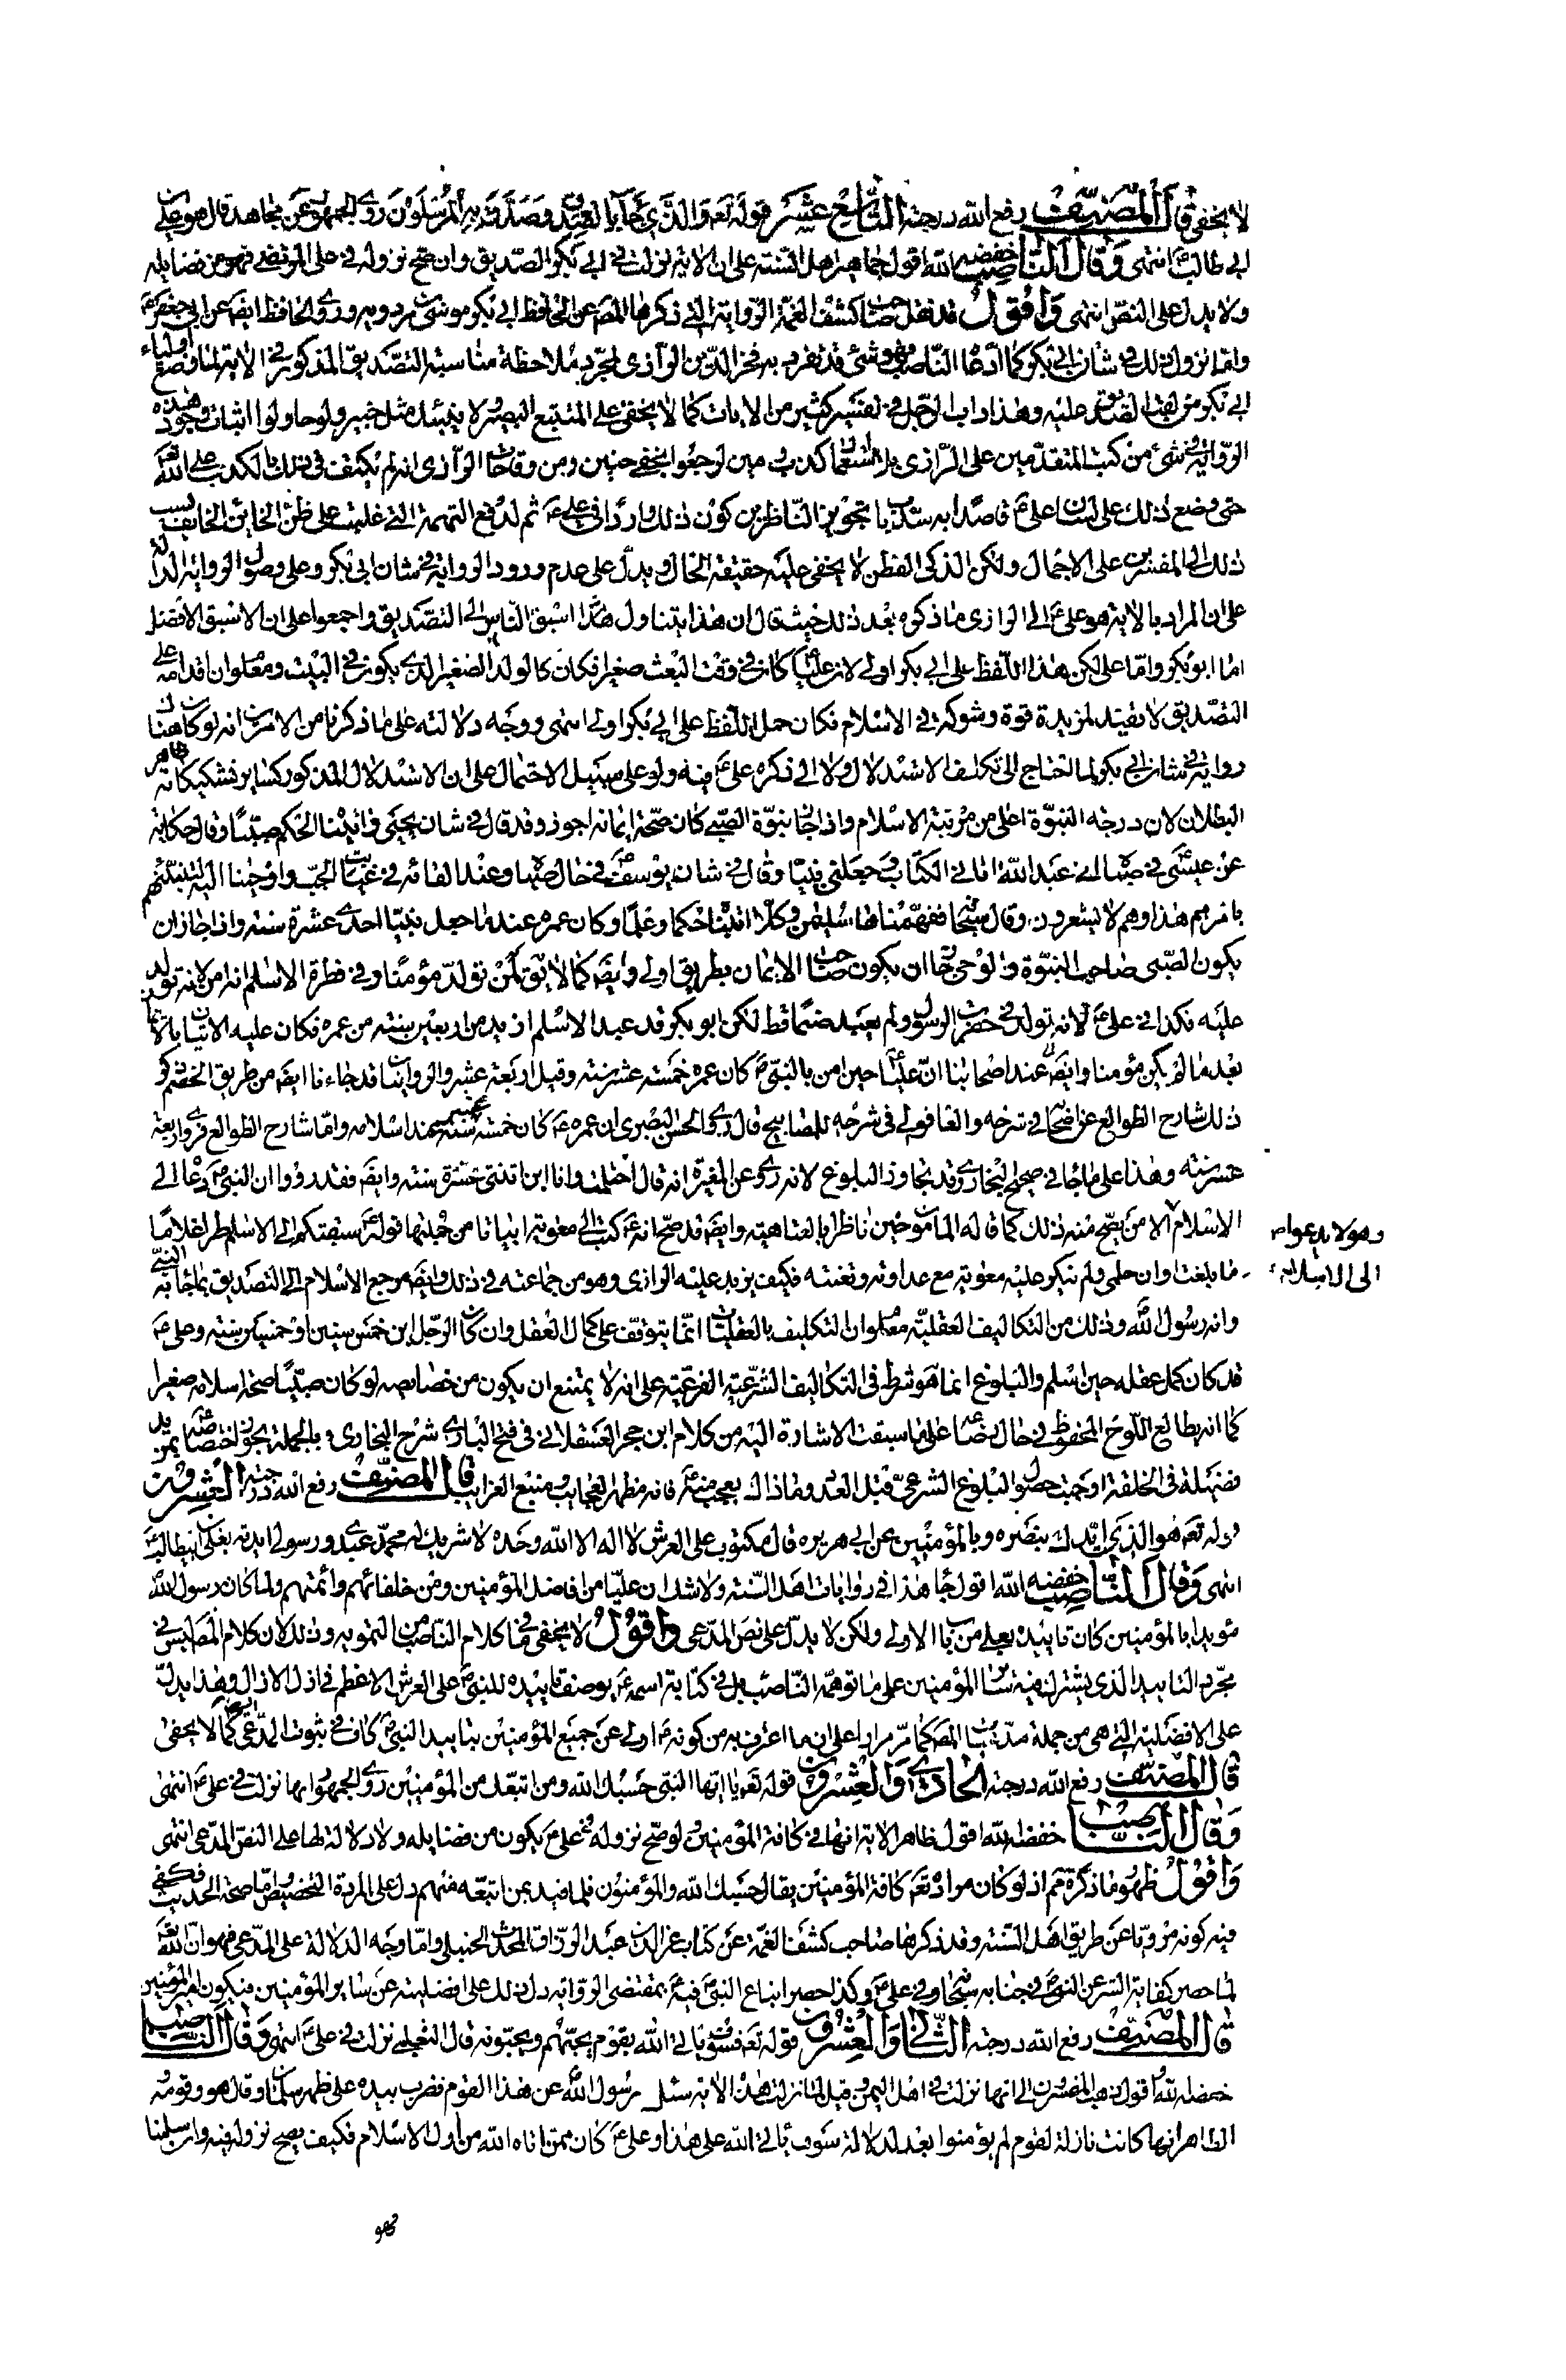 لا يخفى قال المصنف رفع الله درجته التاسع عشر قوله تعه والذي جاء بالصدق وصدق به المرسلون روى الجمهور عن مجاهد قال هو علي بن
ابي طالب ع انتهى وقال الناصب خفضه الله اقول جماهير اهل السنة على ان الاية نزلت في ابي بكر الصديق وان صح نزوله في علي المرتضى فهو من فضايله
ولا يدل على النص انتهى واقول قد نقل صاحب كشف الغمة الرواية التي ذكرها المصه عن الحافظ ابي بكر موسى بن مردويه وروى الحافظ ايضه عن ابي جعفر ع
واما نزول ذلك في شان ابي بكر كما ادعاه الناصب فهو شئ قد تفرد به فخر الدين الرازي لمجرد ملاحظة مناسبة التصديق المذكور في الاية لما وضع اولياء
ابي بكر من لقب الصديق عليه وهذا داب الرجل في تفسير كثير من الايات كما لا يخفى على المتتبع البصير لا ينبئك مثل خبير ولو حاولوا اثبات وجود هذه
الرواية في شئ من كتب المتقدمين على الرازي لرجعوا بخفي حنين ومن وقاحات الرازي انه لم يكتف في ذلك بالكذب على الله تعه
حتى وضع ذلك على لسان علي ع قاصدا به سد باب تجويز الناظرين كون ذلك واردا في علي ع ثم لدفع التهمة التي غلبت على ظن الخاين الخايف نسب
ذلك الى المفسرين على الاجمال ولكن الذكي الفطن لا يخفى عليه حقيقة الحال ويدل على عدم ورود الرواية في شان ابي بكر وعلى وصول الرواية الدالة
على ان المراد بالاية هو علي ع الى الرازي ما ذكره بعد ذلك حيث قال ان هذا يتناول اسبق الناس الى التصديق واجمعوا على ان الاسبق الافضل
اما ابو بكر واما علي لكن هذا اللفظ على ابي بكر اولى لان عليا ع كان في وقت البعث صغيرا فكان كالولد الصغير الذي يكون في البيت ومعلوم ان اقدامه على
التصديق لا يفيد لمزيد قوة وشوكة في الاسلام فكان حمل اللفظ على ابي بكر اولى انتهى ووجه دلالته على ما ذكرنا من الامرين انه لو كان هناك
رواية في شان ابي بكر لما احتاج الى تكلف الاستدلال ولا الى ذكره علي ع فيه ولو على سبيل الاحتمال على ان الاستدلال المذكور كساير تشكيكاته ظاهر
البطلان لان درجة النبوة اعلى من مرتبة الاسلام واذا جاز نبوة الصبي كان صحة ايمانه اجوز وقد قال في شان يحيى واتيناه الحكم صبيا وقال حكاية
عن عيسى في صباه اني عبد الله اتاني الكتاب وجعلني نبيا وقال في شان يوسف ع في حال صباه وعند القائه في غيابت الجب واوحينا اليه لتنبئنهم
بامرهم هذا وهم لا يشعرون وقال سبحانه ففهمناها سليمن وكلا اتينا حكما وعلما وكان عمره عند ما جعل نبيا احدى عشرة سنة واذا جاز ان
يكون الصبي صاحب النبوة والوحي جاز ان يكون صاحب الايمان بطريق اولى وايضه كما لا يقه لمن تولد مؤمنا وفي فطرة الاسلام انه امن لانه تولد
عليه فكذا في علي ع لانه تولد في حضرت الرسول ولم يعبد صنما قط لكن ابو بكر قد عبد الاسلم ازيد من اربعين سنة من عمره فكان عليه الاتيان بالايمان
بعد ما لم يكن مؤمنا وايضه عند اصحابنا ان عليا ع حين امن بالنبي ص كان عمره خمسة عشر سنة وقيل اربعة عشر والروايات قد جاءنا ايضه من طريق الخصم كو
ذلك شارح الطوالع عن اصحابي في شرحه والعاقولي في شرحه للمصابيح قال روى الحسن البصري ان عمره ع كان خمسة عشر سنة عند اسلامه واما شارح الطوالع فروى اربعة
عشر سنة وهذا على ما جاء في صحيح البخاري وقد تجاوز البلوغ لانه روى عن المغيرة انه قال احتلمت وانا ابن اثنتي عشرة سنة وايضه فقد رووا ان النبي ص دعاه الى
الاسلام وهو لا يدعوا الى الاسلام الا من يصح منه ذلك كما قاله المامون حين ناظر ابا العتاهية وايضه قد صح انه ع كتب الى معوية ابياتا من جملتها قوله ع سبقتكم الى الاسلم طرا غلاما
ما بلغت اوان حلمي ولم ينكر عليه معوية مع عداوته وتعنته فكيف يزيد عليه الرازي وهو من جماعته في ذلك وايضه مرجع الاسلام الى التصديق بما جاء به النبي
وانه رسول الله وذلك من التكاليف العقلية ومعلوم ان التكليف بالعقليات انما يتوقف على كمال العقل وان كان الرجل ابن خمس سنين او خمسين سنة وعلي ع
قد كان كمل عقله حين اسلم والبلوغ انما هو شرط في التكاليف الشرعية الفرعية على انه لا يمتنع ان يكون من خصايصه لو كان صبيا صحة اسلامه صغيرا
كما انه يطالع اللوح المحفوظ في حال رضاعه على ما سبقت الاشارة اليه من كلام ابن حجر العسقلاني في فتح الباري شرح البخاري وبالجملة يجوز اختصاصه بمزيد
فضيلة في الخلقة اوجبت حصول البلوغ الشرعي قبل العدد وما ذاك بعجب منه ع فانه مظهر العجايب ومنبع الغرايب قال المصنف رفع الله درجته العشرون
قوله تعه هو الذي ايدك بنصره وبالمؤمنين عن ابي هريره قال مكتوب على العرش لا اله الا الله وحده لا شريك له محمد عبدي ورسولي ايدته بعلي بن ابي طالب ع
انتهى وقال الناصب خفضه الله اقول جاء هذا في روايات اهل السنة ولا شك ان عليا من افاضل المؤمنين ومن خلفائهم وائمتهم ولما كان رسول الله
مؤيدا بالمؤمنين كان تاييده بعلي من باب الاولى ولكن لا يدل على نص المدعى واقول لا يخفى ما في كلام الناصب من التمويه وذلك لان كلام المصه ليس في
مجرد التاييد الذي يشترك فيه ساير المؤمنين على ما توهمه الناصب بل في كتابة اسمه ع بوصف تاييده للنبي ص على العرش الاعظم في ازل الازال وهذا يدل
على الافضلية التي هي من جملة مدعيات المصه كما مر مرارا على ان ما اعترف به من كونه ع اولى عن جميع المؤمنين بتاييد النبي ص كاف في ثبوت المدعى كما لا يخفى
قال المصنف رفع الله درجته الحادي والعشرون قوله تعه يا ايها النبي حسبك الله ومن اتبعك من المؤمنين روى الجمهور انها نزلت في علي ع انتهى
وقال الناصب خفضه الله اقول ظاهر الاية انها في كافة المؤمنين ولو صح نزوله في علي ع يكون من فضايله ولا دلالة لها على النص المدعى انتهى
واقول ظهور ما ذكره مم اذ لو كان مراده تعه كافة المؤمنين يقال حسبك الله والمؤمنون فلما قيد بمن اتبعه منهم دل على ارادة التخصيص واما صحة الحديث فيكفي
فيه كونه مرويا عن طريق اهل السنة وقد ذكرها صاحب كشف الغمة عن كتاب عز الدين عبد الرزاق المحدث الحنبلي واما وجه الدلالة على المدعى فهو ان الله تعه
لما حصر كفاية الشر عن النبي ص في جنابه سبحانه وفي علي ع وكذا حصر اتباع النبي ص فيه ع بمقتضى الرواية دل ذلك على افضليته عن ساير المؤمنين فيكون امير المؤمنين
قال المصنف رفع الله درجته الثاني والعشرون قوله تعه فسوف ياتي الله بقوم يحبهم ويحبونه قال الثعلبي نزلت في علي ع انتهى وقال الناصب
خفضه الله اقول ذهب المفسرون الى انها نزلت في اهل اليمن وقيل لما نزلت هذه الاية سئل رسول الله عن هذا القوم فضرب بيده على ظهر سلمان وقال هو وقومه
الظاهر انها كانت نازلة لقوم لم يؤمنوا بعد لدلالة سوف ياتي الله على هذا وعلي ع كان ممن اتاه الله من اول الاسلام فكيف يصح نزوله فيه وان سلمنا
وهو لا يدعوا
الى الاسلام
فهو